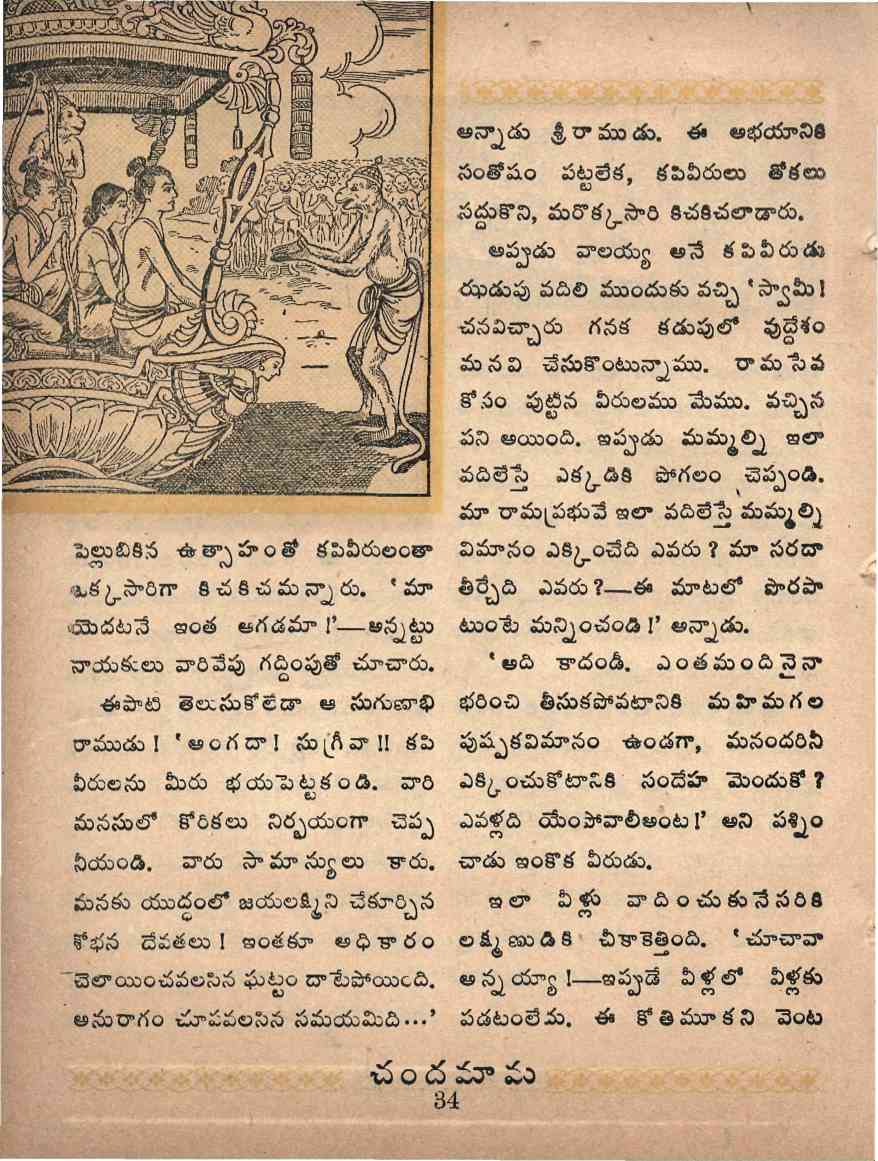 పెల్లుబికిన ఉత్సాహంతో కపివీరులంతా
ఒక్కసారిగా కిచకిచమన్నారు. ‘మా
యెదటనే ఇంత ఆగడమా!’—అన్నట్టు
నాయకులు వారివేపు గద్దింపుతో చూచారు.
ఈపాటి తెలుసుకోలేడా ఆ సుగుణాభి
రాముడు! ‘అంగదా! సుగ్రీవా!! కపి
వీరులను మీరు భయపెట్టకండి. వారి
మనసులో కోరికలు నిర్భయంగా చెప్ప
నీయండి. వారు సామాన్యులు కారు.
మనకు యుద్ధంలో జయలక్ష్మిని చేకూర్చిన
శోభన దేవతలు! ఇంతకూ అధికారం
చెలాయించవలసిన ఘట్టం దాటిపోయింది.
అనురాగం చూపవలసిన సమయమిది...’
అన్నాడు శ్రీరాముడు. ఈ అభయానికి
సంతోషం పట్టలేక, కపివీరులు తోకలు
సద్దుకొని, మరొక్కసారి కిచకిచలాడారు.
అప్పుడు వాలయ్య అనే కపివీరుడు
ఝడుపు వదిలి ముందుకు వచ్చి ‘స్వామీ!
చనవిచ్చారు గనక కడుపులో వుద్దేశం
మనవి చేసుకొంటున్నాము. రామసేవ
కోసం పుట్టిన వీరులము మేము. వచ్చిన
పని అయింది. ఇప్పుడు మమ్మల్ని ఇలా
వదిలేస్తే ఎక్కడికి పోగలం చెప్పండి.
మా రామప్రభువే ఇలా వదిలేస్తే మమ్మల్ని
విమానం ఎక్కించేది ఎవరు? మా సరదా
తీర్చేది ఎవరు?—ఈ మాటలో పొరపా
టుంటే మన్నించండి!’ అన్నాడు.
‘అది కాదండీ. ఎంతమందినైనా
భరించి తీసుకపోవటానికి మహిమగల
పుష్పకవిమానం ఉండగా, మనందరినీ
ఎక్కించుకోటానికి సందేహ మెందుకో?
ఎవళ్లది యేంపోవాలీఅంట!’ అని పశ్నిం
చాడు ఇంకొక వీరుడు.
ఇలా వీళ్లు వాదించుకునేసరికి
లక్ష్మణుడికి చీకాకెత్తింది. ‘చూచావా
అన్నయ్యా!—ఇప్పుడే వీళ్లలో వీళ్లకు
పడటంలేదు. ఈ కోతిమూకని వెంట
చందమామ
34